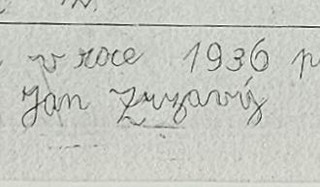 v roce 1936 p
Jan Zrzavý